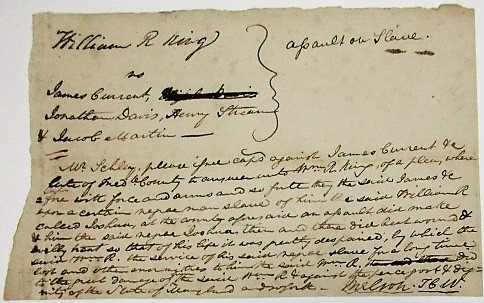 William R King
assault on Slave.
vs
James Current,
Jonathan Davis, Henry
& Jacob Martin —
Mr Schley, please issue caps against James Current &c
late of Fredk County to answer unto Wm R King of a plea, where
fore with force and arms and so forth they the said James &c
upon a certain negro man slave of him the said William R
called Joshua, at the county aforesaid an assault did make
& him the said negro Joshua then and there did beat wound &
illy treat so that of his life it was greatly despaired, by which the
said Wm R. the service of his said negro slave for a long time
lost and other enormities to him the said Wm R. did
to the great damage of the said Wm R & against the peace, govt & dig-
nity of the State of Maryland and so forth